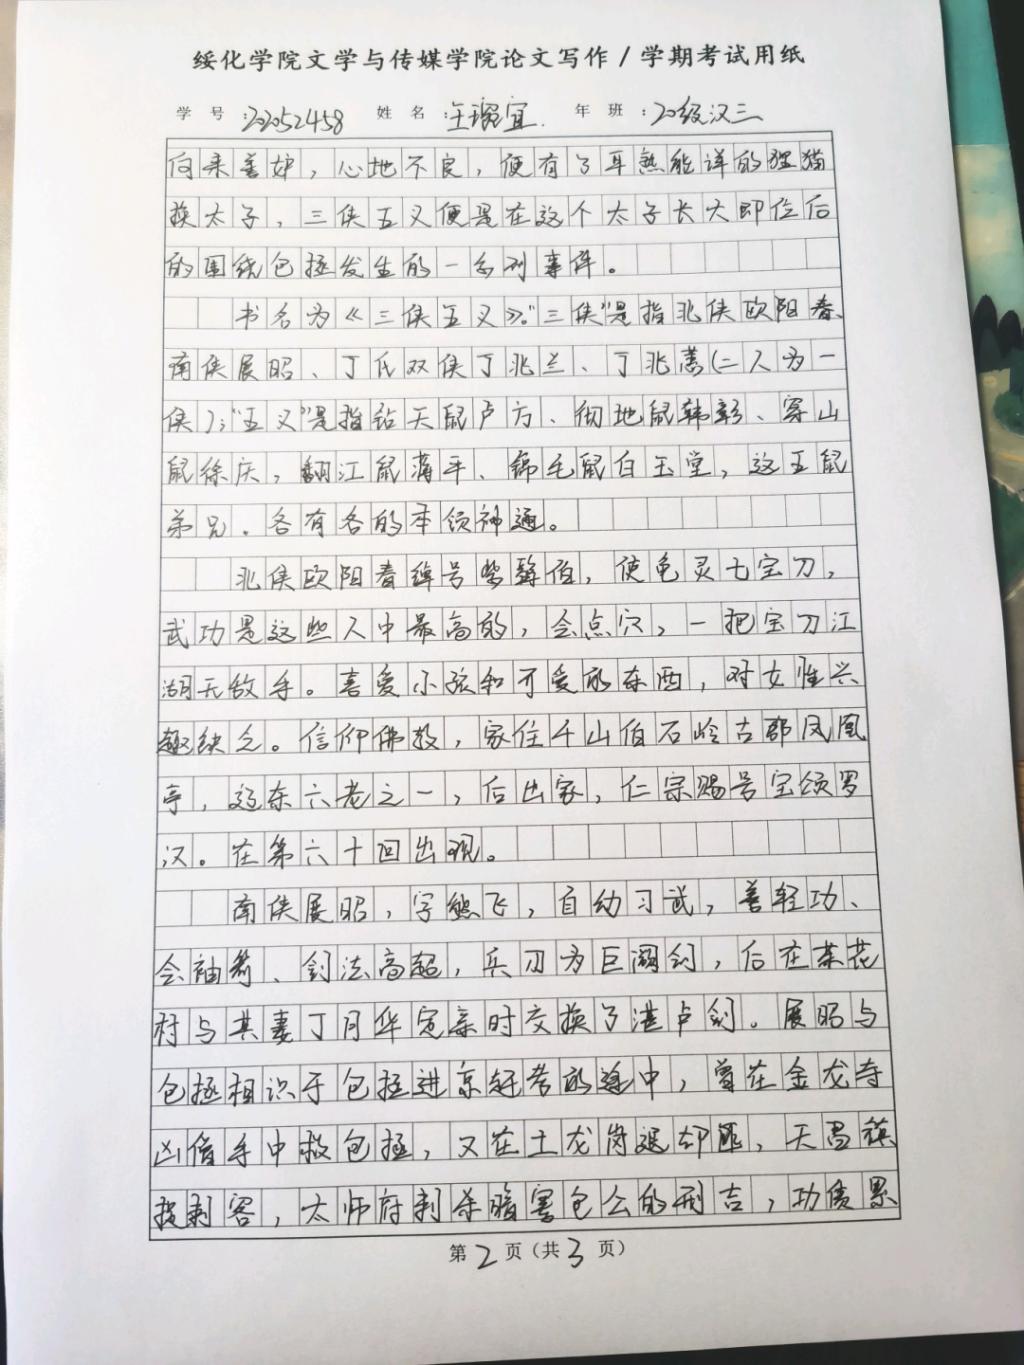 绥化学院文学与传媒学院论文写作/学期考试用纸
学号:202052458 姓名:王瑞宜 年班:20级汉三
向来善妒，心地不良，便有了耳熟能详的狸猫
换太子，三侠五义便是在这个太子长大即位后
的围绕包拯发生的一系列事件。
书名为《三侠五义》。"三侠"是指北侠欧阳春、
南侠展昭、丁氏双侠丁兆兰、丁兆蕙(二人为一
侠)；"五义"是指钻天鼠卢方、彻地鼠韩彰、穿山
鼠徐庆，翻江鼠蒋平、锦毛鼠白玉堂，这五鼠
弟兄．各有各的本领神通。
北侠欧阳春绰号紫髯伯，使龟灵七宝刀，
武功是这些人中最高的，会点穴，一把宝刀江
湖无敌手。喜爱小孩和可爱的东西，对女性兴
趣缺乏。信仰佛教，家住千山伯石岭古郡凤凰
亭，辽东六老之一，后出家，仁宗赐号宝颂罗
汉。在第六十回出现。
南侠展昭，字熊飞，自幼习武，善轻功、
会袖箭、剑法高超，兵刃为巨阙剑，后在茉花
村与其妻丁月华定亲时交换了湛卢剑。展昭与
包拯相识于包拯进京赶考的途中，曾在金龙寺
凶僧手中救包拯，又在土龙岗退却匪，天昌镇
捉刺客，太师府刺杀暗害包公的刑吉，功绩累
第2页(共3页)